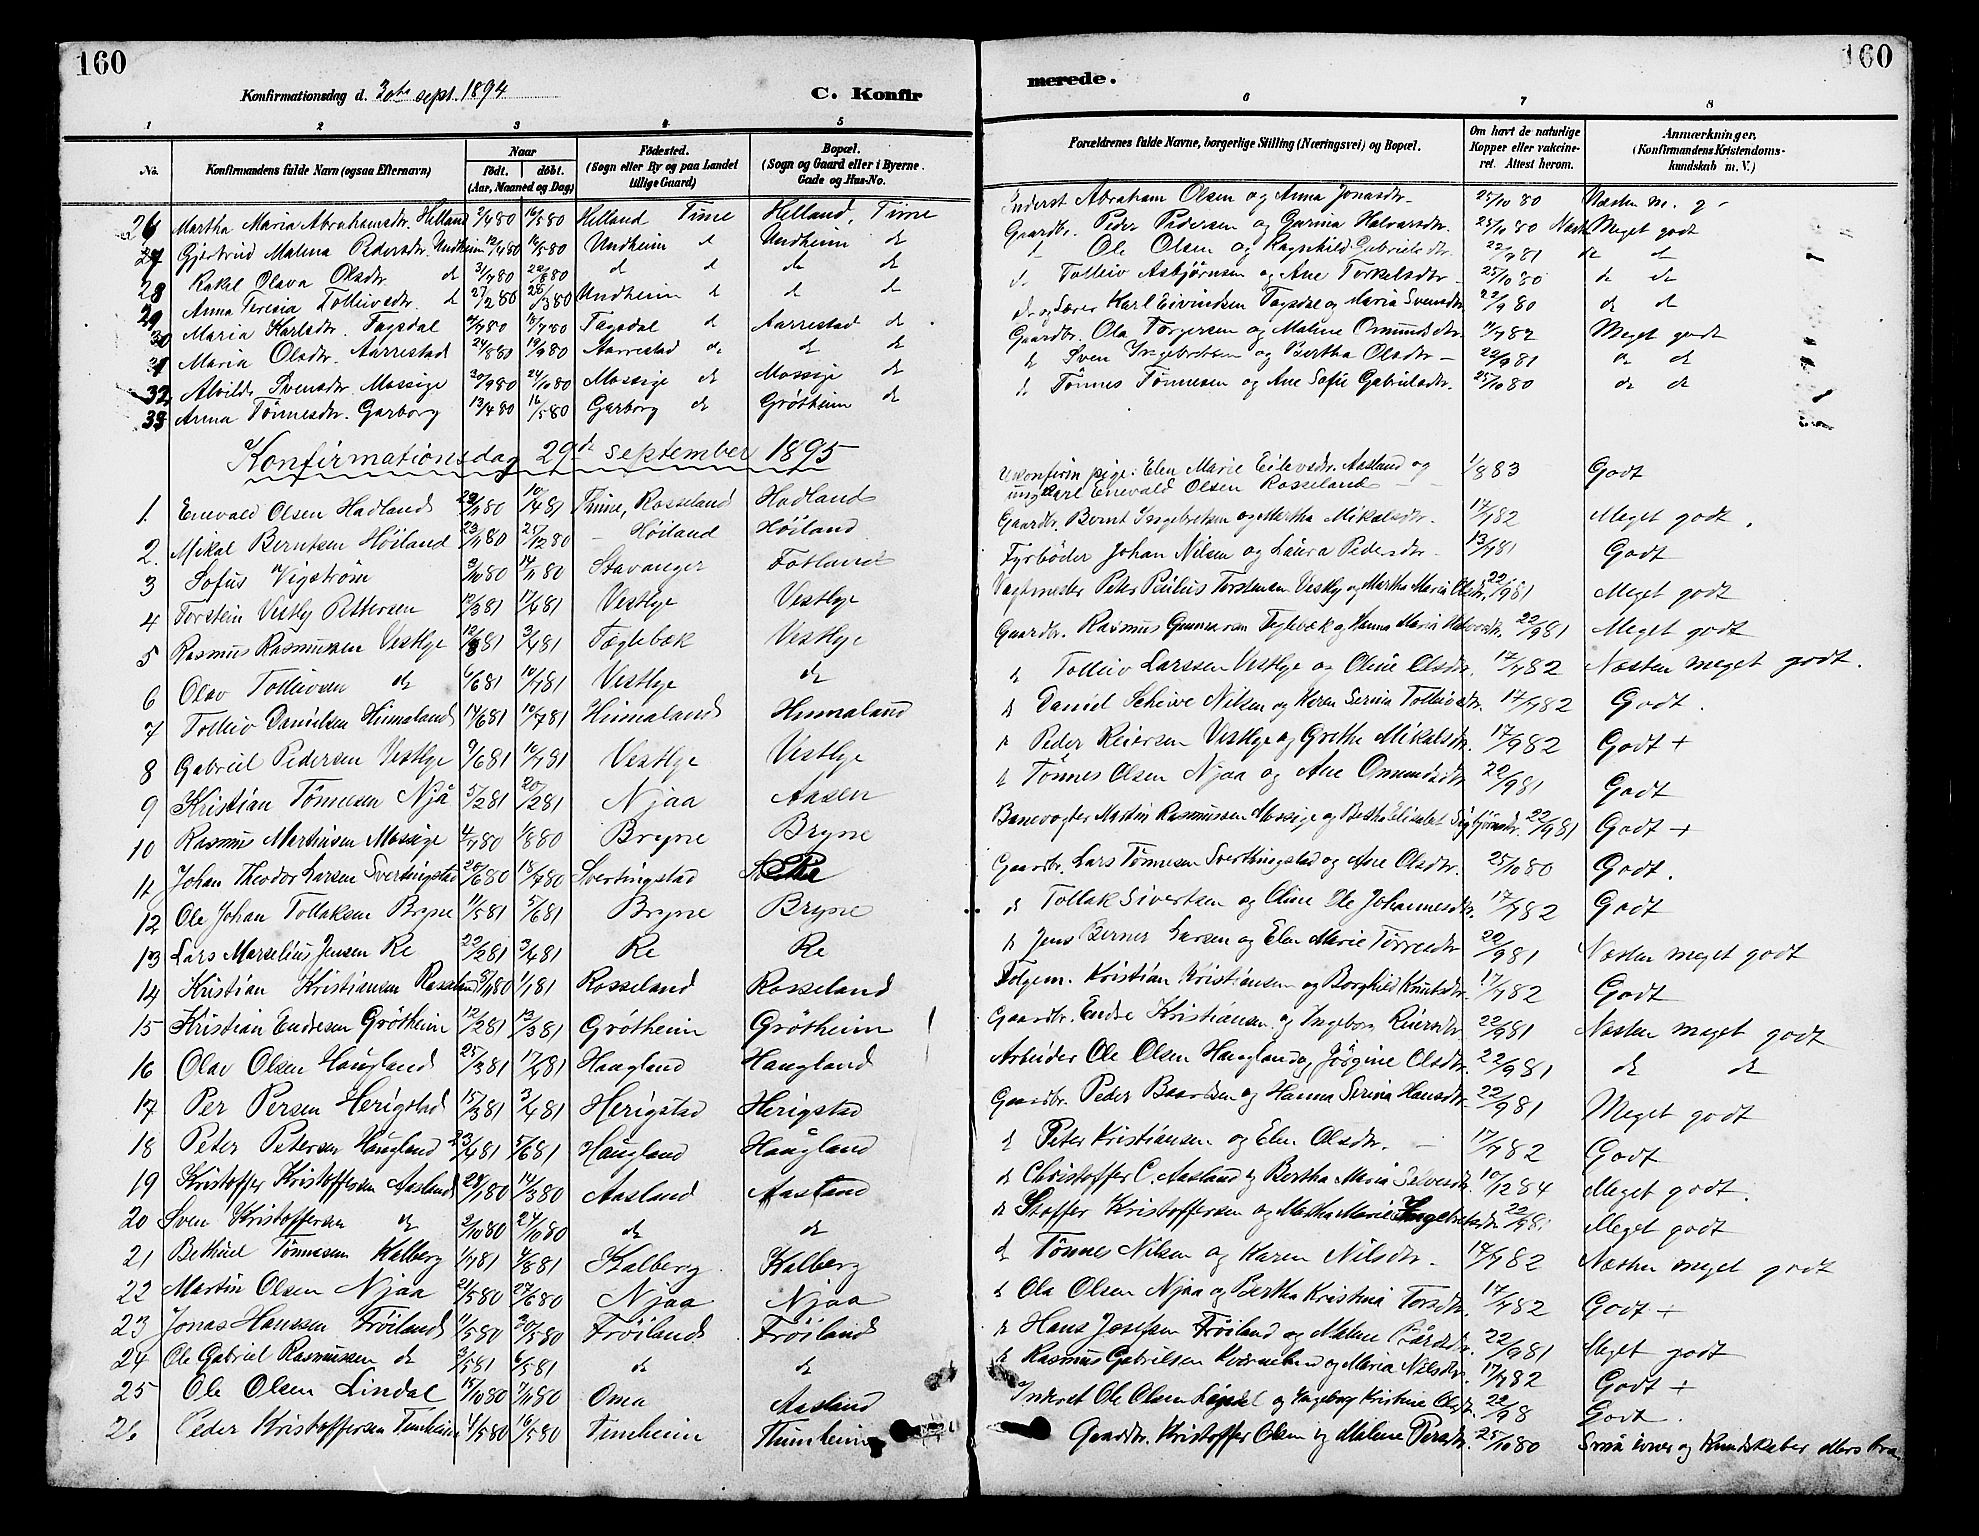 160
160
Konfirmationsdag d. 30te sept. 1894
C. Konfir
merede.
1 2 3 4 5 6 7 8
No. Konfirmandens fulde Navn (ogsaa Efternavn) Naar født. døbt. (Aar, Maaned og Dag) Fødested. (Sogn eller By og paa Landet tillige Gaard) Bopæl. (Sogn og Gaard eller i Byerne. Gade og Hus-No.
Forældrenes fulde Navne, borgerlige Stilling (Næringsvei) og Bopæl. Om havt de naturlige Kopper eller vakcineret. Attest herom. Anmærkninger. (Konfirmandens Kristendomskundskab m. V.)
26 Martha Maria Abrahamsdr. Helland 9/480 16/580 Helland Time Helland, Time Inderst Abraham Olsen og Anna Jonasdr. 25/1080 Næsten m. g
27 Gjertrud Malena Pedersdr. Undheim 12/480 16/580 Undheim d Undheim d Gaardbr. Peder Pedersen og Gurina Halvarsdr. 25/1080 Meget godt
28 Rakel Olava Olsdr. d d d d d d Ole Olsen og Ragnhild Gabrielsdr. d d
29 Anna Teresia Tolleivsdr. d 27/280 28/380 Undheim d d d d Tolleiv Asbjørnsen og Ane Torkelsdr. 25/1080 d d
30 Maria Karlsdr. Tagsdal Tagsdal d Aarrestad d Karl Eivindsen Tagsdal og Maria Svensdr. d d
31 Maria Olsdr. Aarrestad 24/880 19/980 Aarrestad d d d Gaardbr. Ola Torgersen og Malene Omundsdr. Meget godt
32 Alvilde Svensdr. Mossige 20/980 24/1080 Mossige d Mossige d d Sven Ingebretsen og Bertha Olsdr. 22/981 d d
33 Anna Tønnesdr. Garborg 13/480 16/580 Garborg d Grøtheim d d Tønnes Tønnesen og Ane Sofie Gabrielsdr. 25/1080 d d
Konfirmationsdag 29de september 1895
1. Enevald Olsen Hadland 10/481 Thime, Rosseland Hadland Ukonfirm pige: Elen Marie Eilevsdr. Aasland og
ungkarl Enevald Olsen Rosseland 1/883 Godt
2. Mikal Berntsen Høiland 23/1180 25/1280 Høiland Høiland Gaardbr. Bernt Ingebretsen og Martha Mikalsdr. 17/782 Meget godt.
3 Sofus Vigstrøm 3/1080 14/1180 Stavanger Fotland Fyrbøder Johan Nilsen og Laura Pedersdr. 13/781 Godt
4 Torstein Vestly Pettersen 12/381 17/481 Vestlye Vestlye Vagtmester Peter Paulus Torstensen Vestly og Martha Maria Olsdr. 22/981 Meget godt
5 Rasmus Rasmussen Vestlye 3/481 Tæglebæk Vestlye Gaardbr. Rasmus Gunnarsen Teglebæk og Hanna Maria 22/981 Meget godt
6 Olav Tolleivsen d 6/681 10/781 Vestlye d d Tolleiv Larssen Vestlye og Oline Olsdr. 17/782 Næsten meget godt.
7 Tolleiv Danielsen Heimaland 14/681 10/781 Heimaland Heimaland d Daniel Scheive Nilsen og Karen Serina Tolleivsdr. 17/782 Godt.
8 Gabriel Pedersen Vestlye 9/681 10/781 Vestlye Vestlye d Peder Reiersen Vestlye og Grethe Mikalsdr. 17/982 Godt +
9 Kristian Tønnesen Njå 5/281 20/281 Njaa Aasen d Tønnes Olsen Njaa og Ane Omundsdr. 22/981 Godt
10 Rasmus Martinsen Mossige 4/780 1/880 Bryne Bryne Banevogter Martin Rasmussen Mossige og Bertha Elisabet Sigbjørnsdr. 22/981 Godt +
11 Johan Theodor Larsen Svertingstad 20/680 18/780 Svertingstad Re Gaardbr. Lars Tønnesen Svertingstad og Ane Olsdr. 25/1080 Godt.
12 Ole Johan Tollaksen Bryne 11/581 5/681 Bryne Bryne d Tollak Sivertsen og Oline Johannesdr. 17/782 Godt
13 Lars Marselius Jensen Re 22/281 3/481 Re Re d Jens Berner Larsen og Elen Marie 22/981 Næsten meget godt
14 Kristian Kristiansen Rosseland 1/181 Rosseland Rosseland Folgem. Kristian Kristiansen og Borghild Knutsdr. 17/782 Godt
15 Kristian Endresen Grøtheim 12/281 13/381 Grøtheim Grøtheim Gaardbr. Endre Kristiansen og Ingeborg Reiersdr. 22/981 Næsten meget godt
16 Olav Olsen Haugland 25/381 17/481 Haugland Haugland Arbeider Ole Olsen Haugland og Jørgine Olsdr. 22/981 d d
17 Per Persen Herigstad 15/381 3/481 Herigstad Herigstad Gaardbr. Peder Baardsen og Hanna Serina Hansdr. 22/981 Meget godt
18 Peter Petersen Haugland 23/481 5/681 Haugland Haugland d Peter Kristiansen og Elen Olsdr. 17/782 Godt
19 Kristoffer Kristoffersen Aasland 28/180 14/380 Aasland Aasland d Christoffer C. Aasland og Bertha Maria 10/1284 Meget godt.
20 Sven Kristoffersen d 2/1080 24/1080 d d d Stoffer Kristoffersen og Martha Marie Ingebretsdr. 22/981 Meget godt
21 Bethuel Tønnesen Kalberg 1/781 4/881 Kalberg Kalberg d Tønnes Nilsen og Karen Nilsdr. 14/782 Næsten meget godt
22 Martin Olsen Njaa 21/580 27/680 Njaa Njaa d Ola Olsen Njaa og Bertha Kristina Torsdr. 17/782 Godt +
23 Jonas Hanssen Frøiland 1/580 20/580 Frøiland Frøiland d Hans Josefsen Frøiland og Malene Bårdsdr. 22/981 Meget godt
24 Ole Gabriel Rasmussen d 3/581 6/581 d d d Rasmus Gabrielsen og Maria Nilsdr. 17/782 Godt +
25 Ole Olsen Lindal 15/1080 7/1180 Oma Aasland Inderst Ole Olsen Lindal og Ingeborg Kristine Olsdr. 22/98 Godt.
26 Peder Kristoffersen Timheim 4/580 16/580 Timheim Thimheim Gaardbr. Kristoffer Olsen og Malene Persdr. 25/1080 Smaa evner og Kundskaber ellers bra